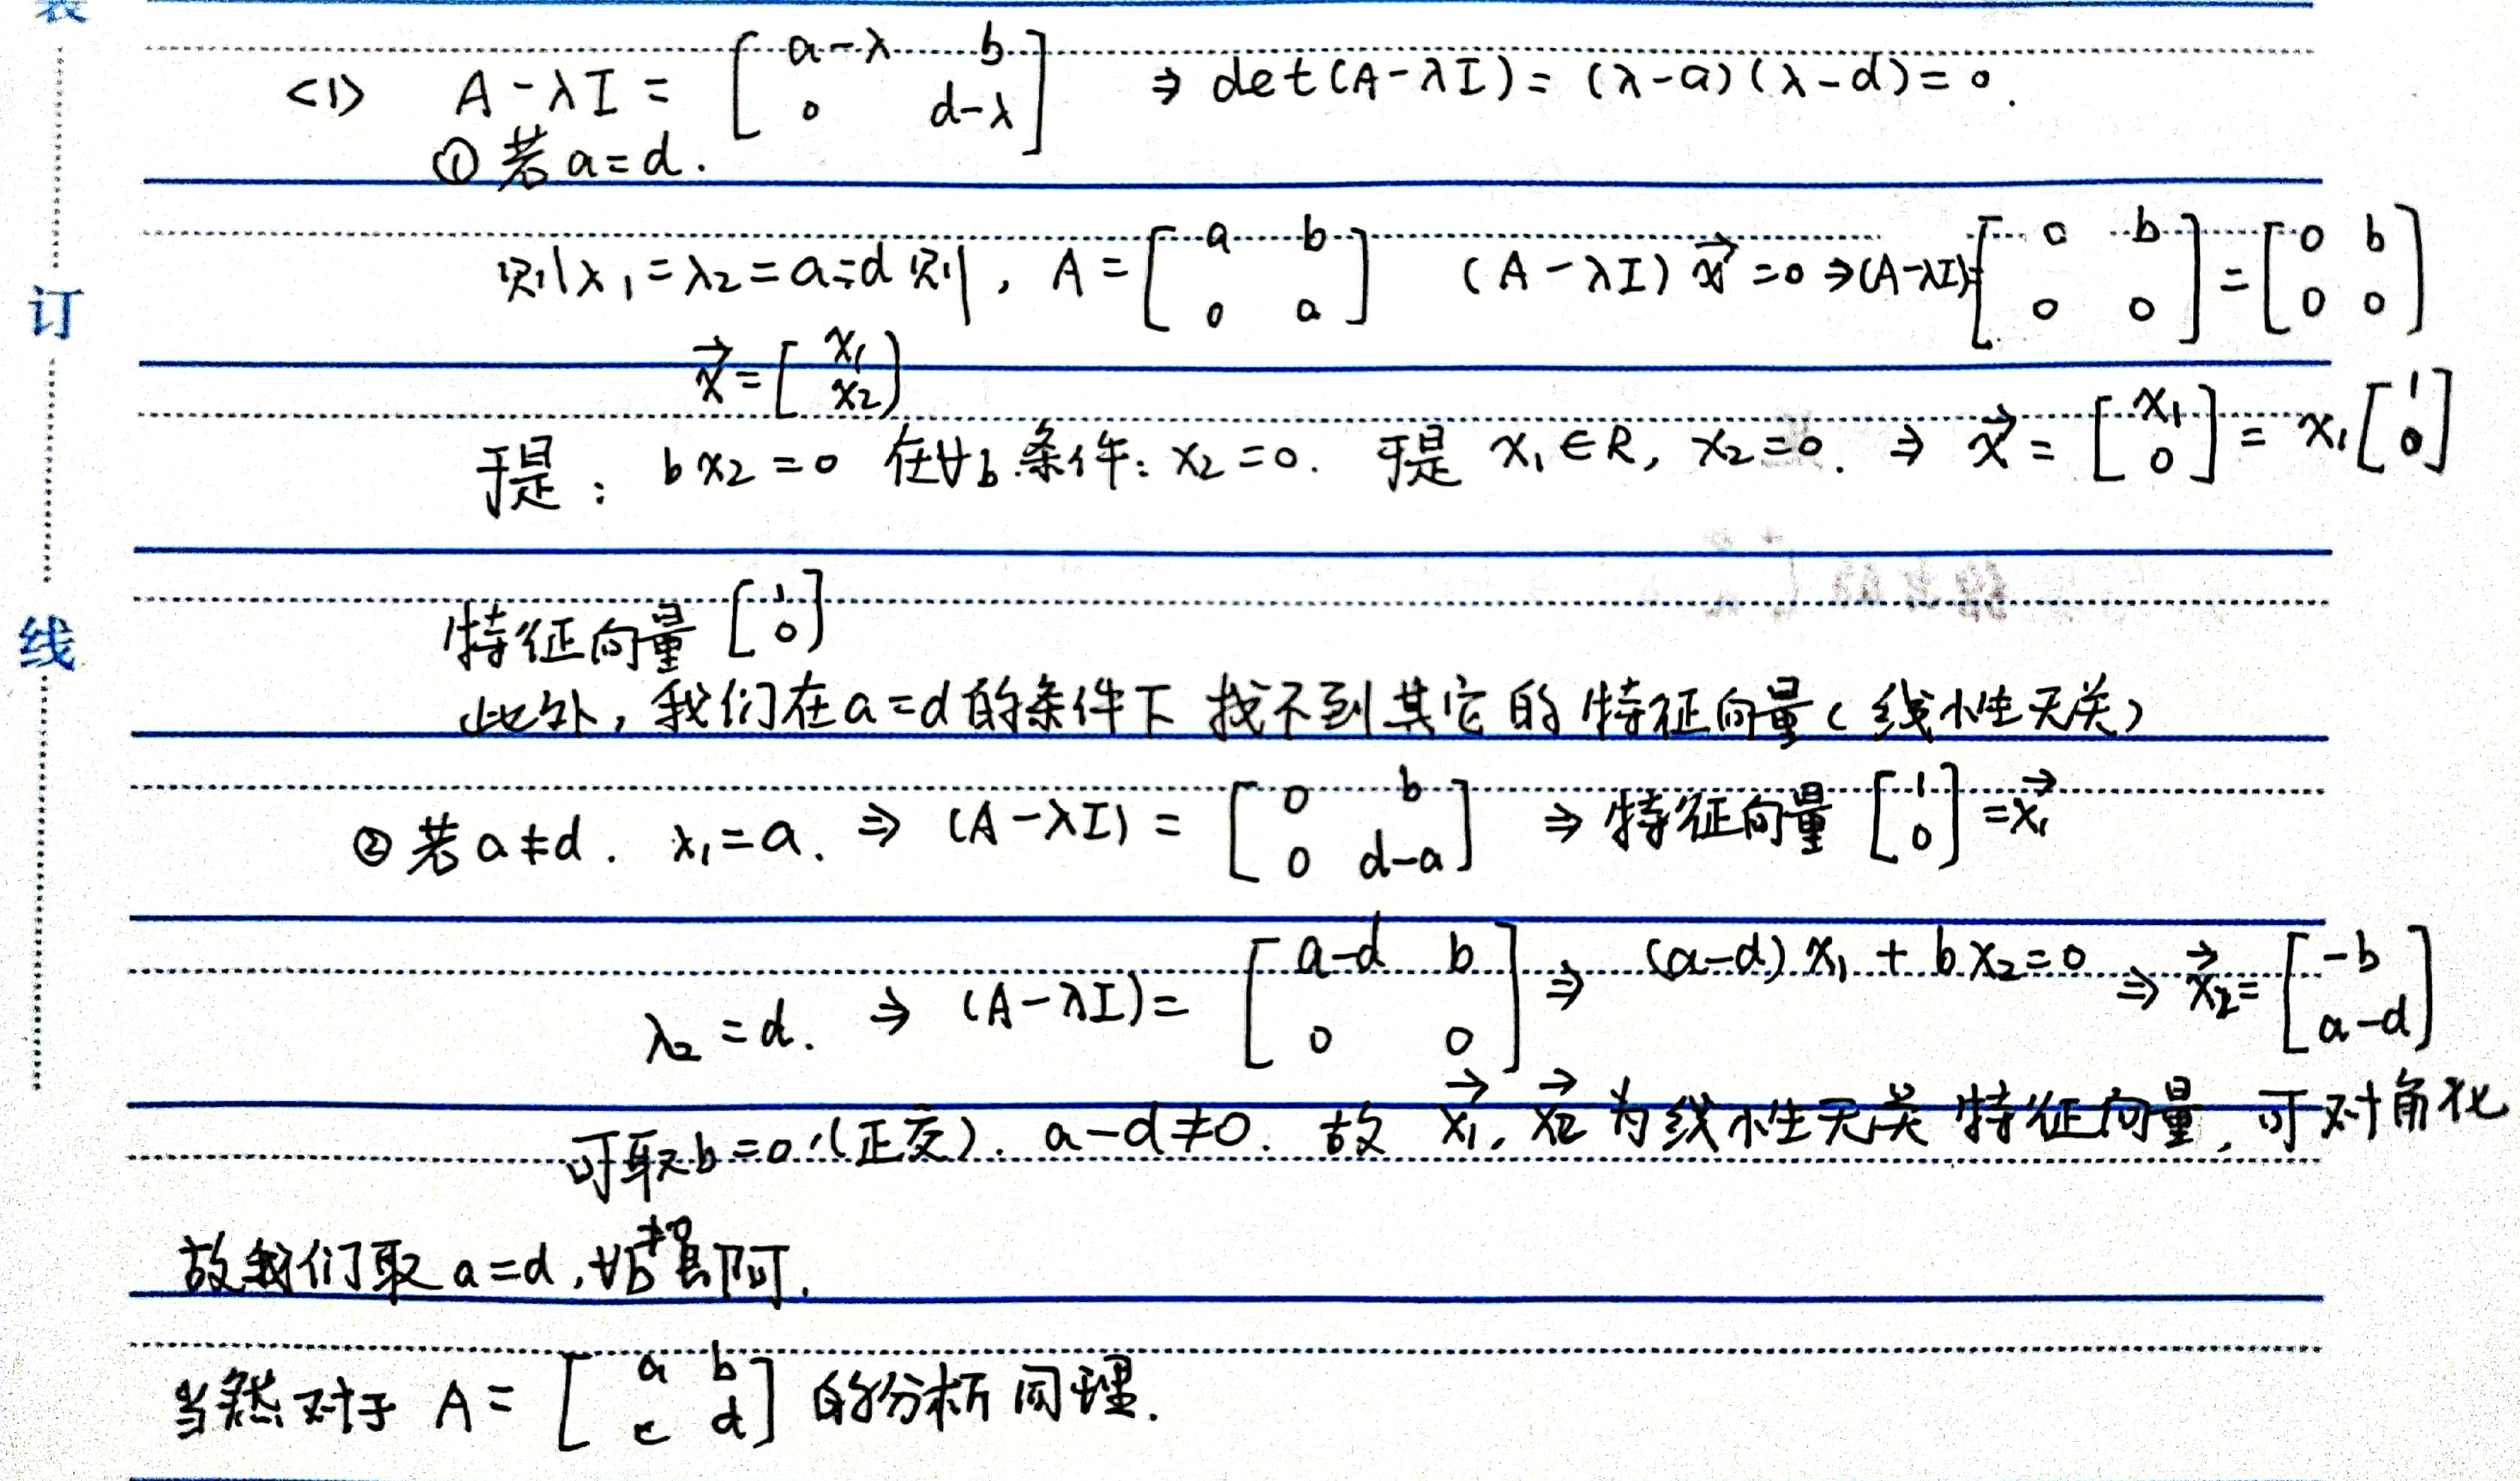 <1> A - λI = [ a-λ b ; 0 d-λ ] ⇒ det(A-λI) = (λ-a)(λ-d) = 0.
① 若 a=d.
则 λ₁=λ₂=a=d 则, A = [ a b ; 0 a ] (A-λI)x⃗=0 ⇒ (A-λI)= [ 0 b ; 0 0 ] = [ 0 b ; 0 0 ]
x⃗ = [ x₁ ; x₂ ]
于是: bx₂=0 在∀b 条件: x₂=0. 于是 x₁∈R, x₂=0. ⇒ x⃗ = [ x₁ ; 0 ] = x₁[ 1 ; 0 ]
特征向量 [ 1 ; 0 ]
此外, 我们在a=d的条件下 找不到其它的特征向量(线性无关)
② 若 a≠d. λ₁=a. ⇒ (A-λI) = [ 0 b ; 0 d-a ] ⇒ 特征向量 [ 1 ; 0 ] = x⃗₁
λ₂=d. ⇒ (A-λI)= [ a-d b ; 0 0 ] ⇒ (a-d)x₁+bx₂=0 ⇒ x⃗₂= [ -b ; a-d ]
可取b=0(正交). a-d≠0. 故 x⃗₁, x⃗₂ 为线性无关特征向量, 可对角化
故我们取 a=d, ∀b≠0 即可.
当然对于 A = [ a b ; c d ] 的分析同理.
订
线